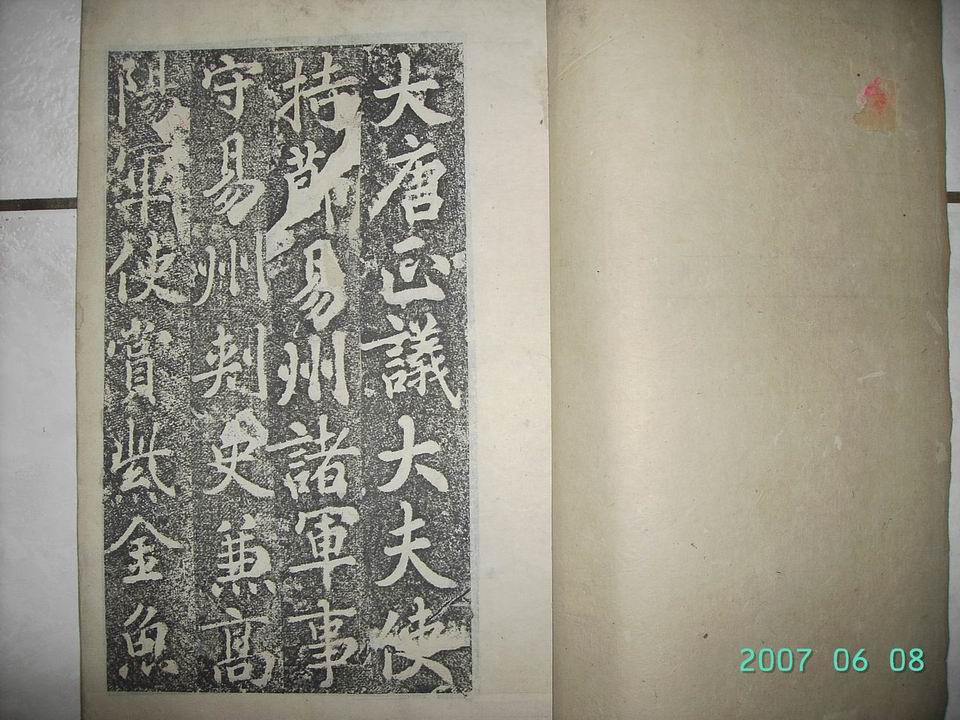 大唐正議大夫使
持節易州諸軍事
守易州刺史兼高
陽軍使賞紫金魚
2007 06 08